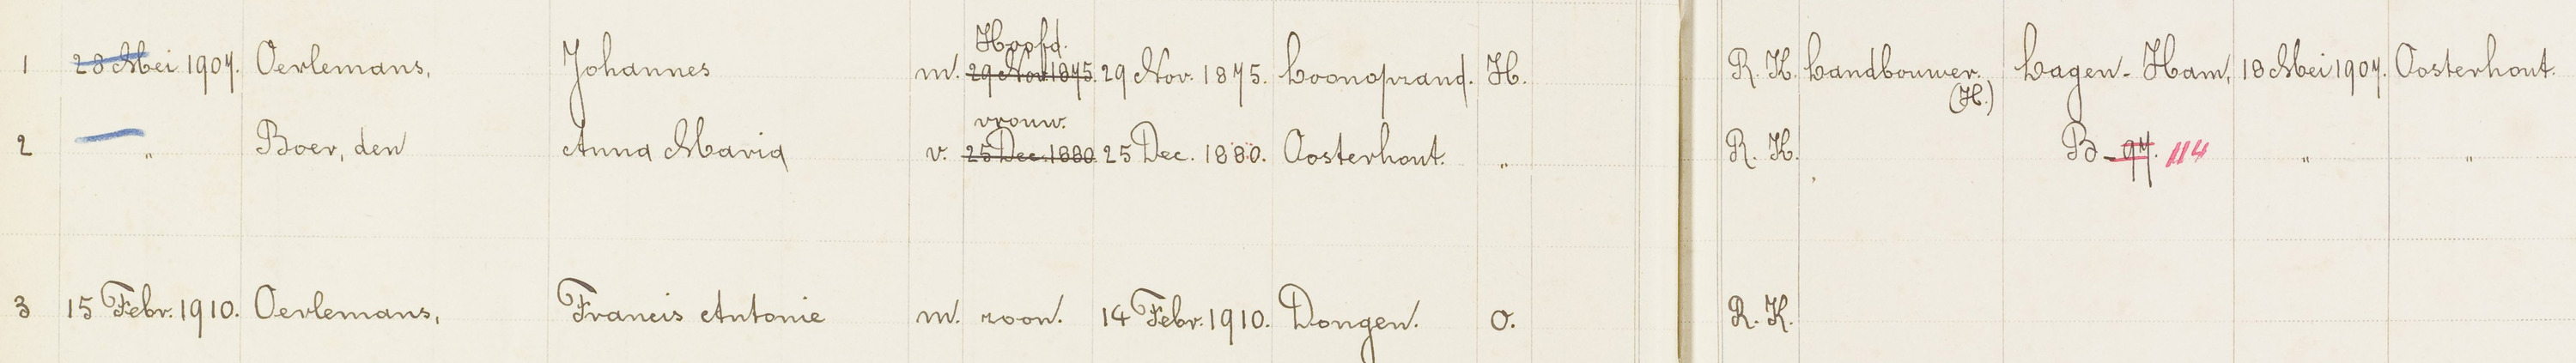 Hoofd.
1 28 Mei 1907. Oerlemans, Johannes m. 29 Nov. 1875. 29 Nov. 1875. Loonopzand. H. R. K. Landbouwer. Lagen-Ham, 18 Mei 1907. Oosterhout.
(H.)
vrouw.
2 " Boer, den Anna Maria v. 25 Dec. 1880 25 Dec. 1880. Oosterhout. " R. K. B - 97. 114 " "
3 15 Febr. 1910. Oerlemans, Francis Antonie m. zoon. 14 Febr. 1910. Dongen. O. R. K.